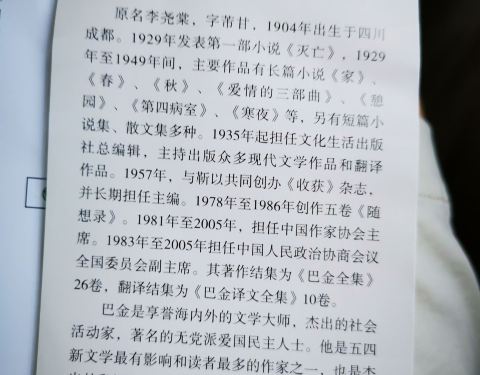 原名李尧棠，字芾甘，1904年出生于四川
成都。1929年发表第一部小说《灭亡》，1929
年至1949年间，主要作品有长篇小说《家》、
《春》、《秋》、《爱情的三部曲》、《憩
园》、《第四病室》、《寒夜》等，另有短篇小
说集、散文集多种。1935年起担任文化生活出版
社总编辑，主持出版众多现代文学作品和翻译
作品。1957年，与靳以共同创办《收获》杂志，
并长期担任主编。1978年至1986年创作五卷《随
想录》。1981年至2005年，担任中国作家协会主
席。1983年至2005年担任中国人民政治协商会议
全国委员会副主席。其著作结集为《巴金全集》
26卷，翻译结集为《巴金译文全集》10卷。
巴金是享誉海内外的文学大师，杰出的社会
活动家，著名的无党派爱国民主人士。他是五四
新文学最有影响和读者最多的作家之一，也是杰